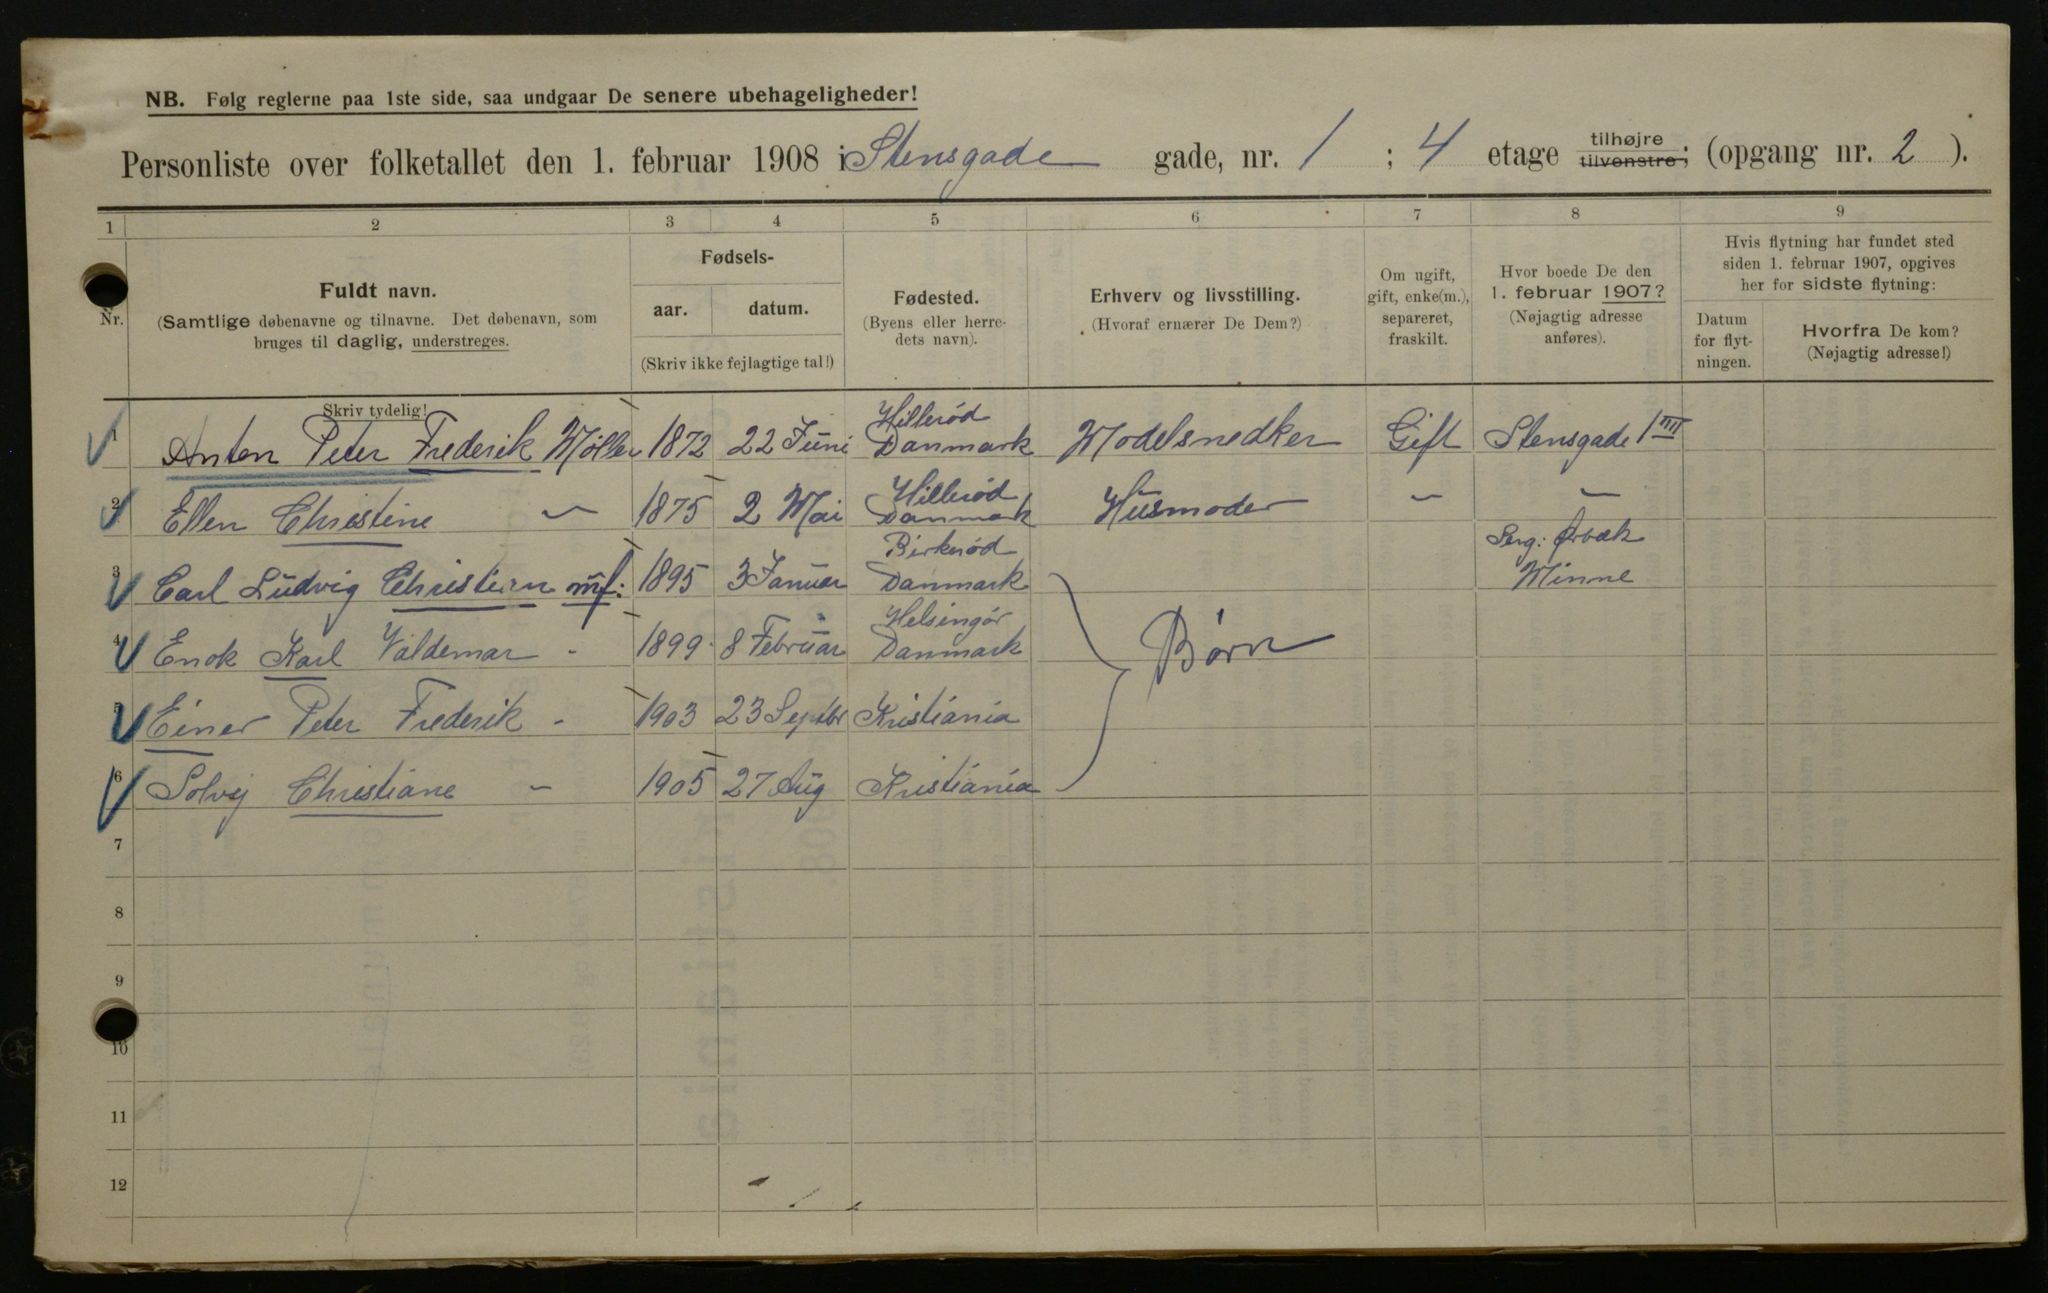 NB. Følg reglerne paa 1ste side, saa undgaar De senere ubehageligheder!
Personliste over folketallet den 1. februar 1908 i Stensgade gade, nr. 1 ; 4 etage tilhøjre tilvenstre; (opgang nr. 2 ).
1 2 3 4 5 6 7 8 9
Nr.
Fuldt navn.
(Samtlige døbenavne og tilnavne. Det døbenavn, som
bruges til daglig, understreges.
Skriv tydelig!
Fødsels-
aar. datum.
(Skriv ikke fejlagtige tal!)
Fødested.
(Byens eller herre-
dets navn).
Erhverv og livsstilling.
(Hvoraf ernærer De Dem?)
Om ugift,
gift, enke(m.),
separeret,
fraskilt.
Hvor boede De den
1. februar 1907?
(Nøjagtig adresse
anføres).
Hvis flytning har fundet sted
siden 1. februar 1907, opgives
her for sidste flytning:
Datum
for flyt-
ningen.
Hvorfra De kom?
(Nøjagtig adresse!)
Hillerød
1 Anton Peter Frederik Möller 1872 22 Juni Danmark Modelsnedker Gift Stensgade 1 III
Hillerød
2 Ellen Christine 〃 1875 2 Mai Danmark Husmoder 〃 〃
Birkerød
3 Carl Ludvig Christian 1895 3 Januar Danmark
Minne
Helsingör
4 Enok Karl Valdemar - 1899 8 Februar Danmark Børn
5 Einer Peter Frederik - 1903 23 Septbr Kristiania
6 Solvej Christiane - 1905 27 Aug Kristiania
7
8
9
10
11
12